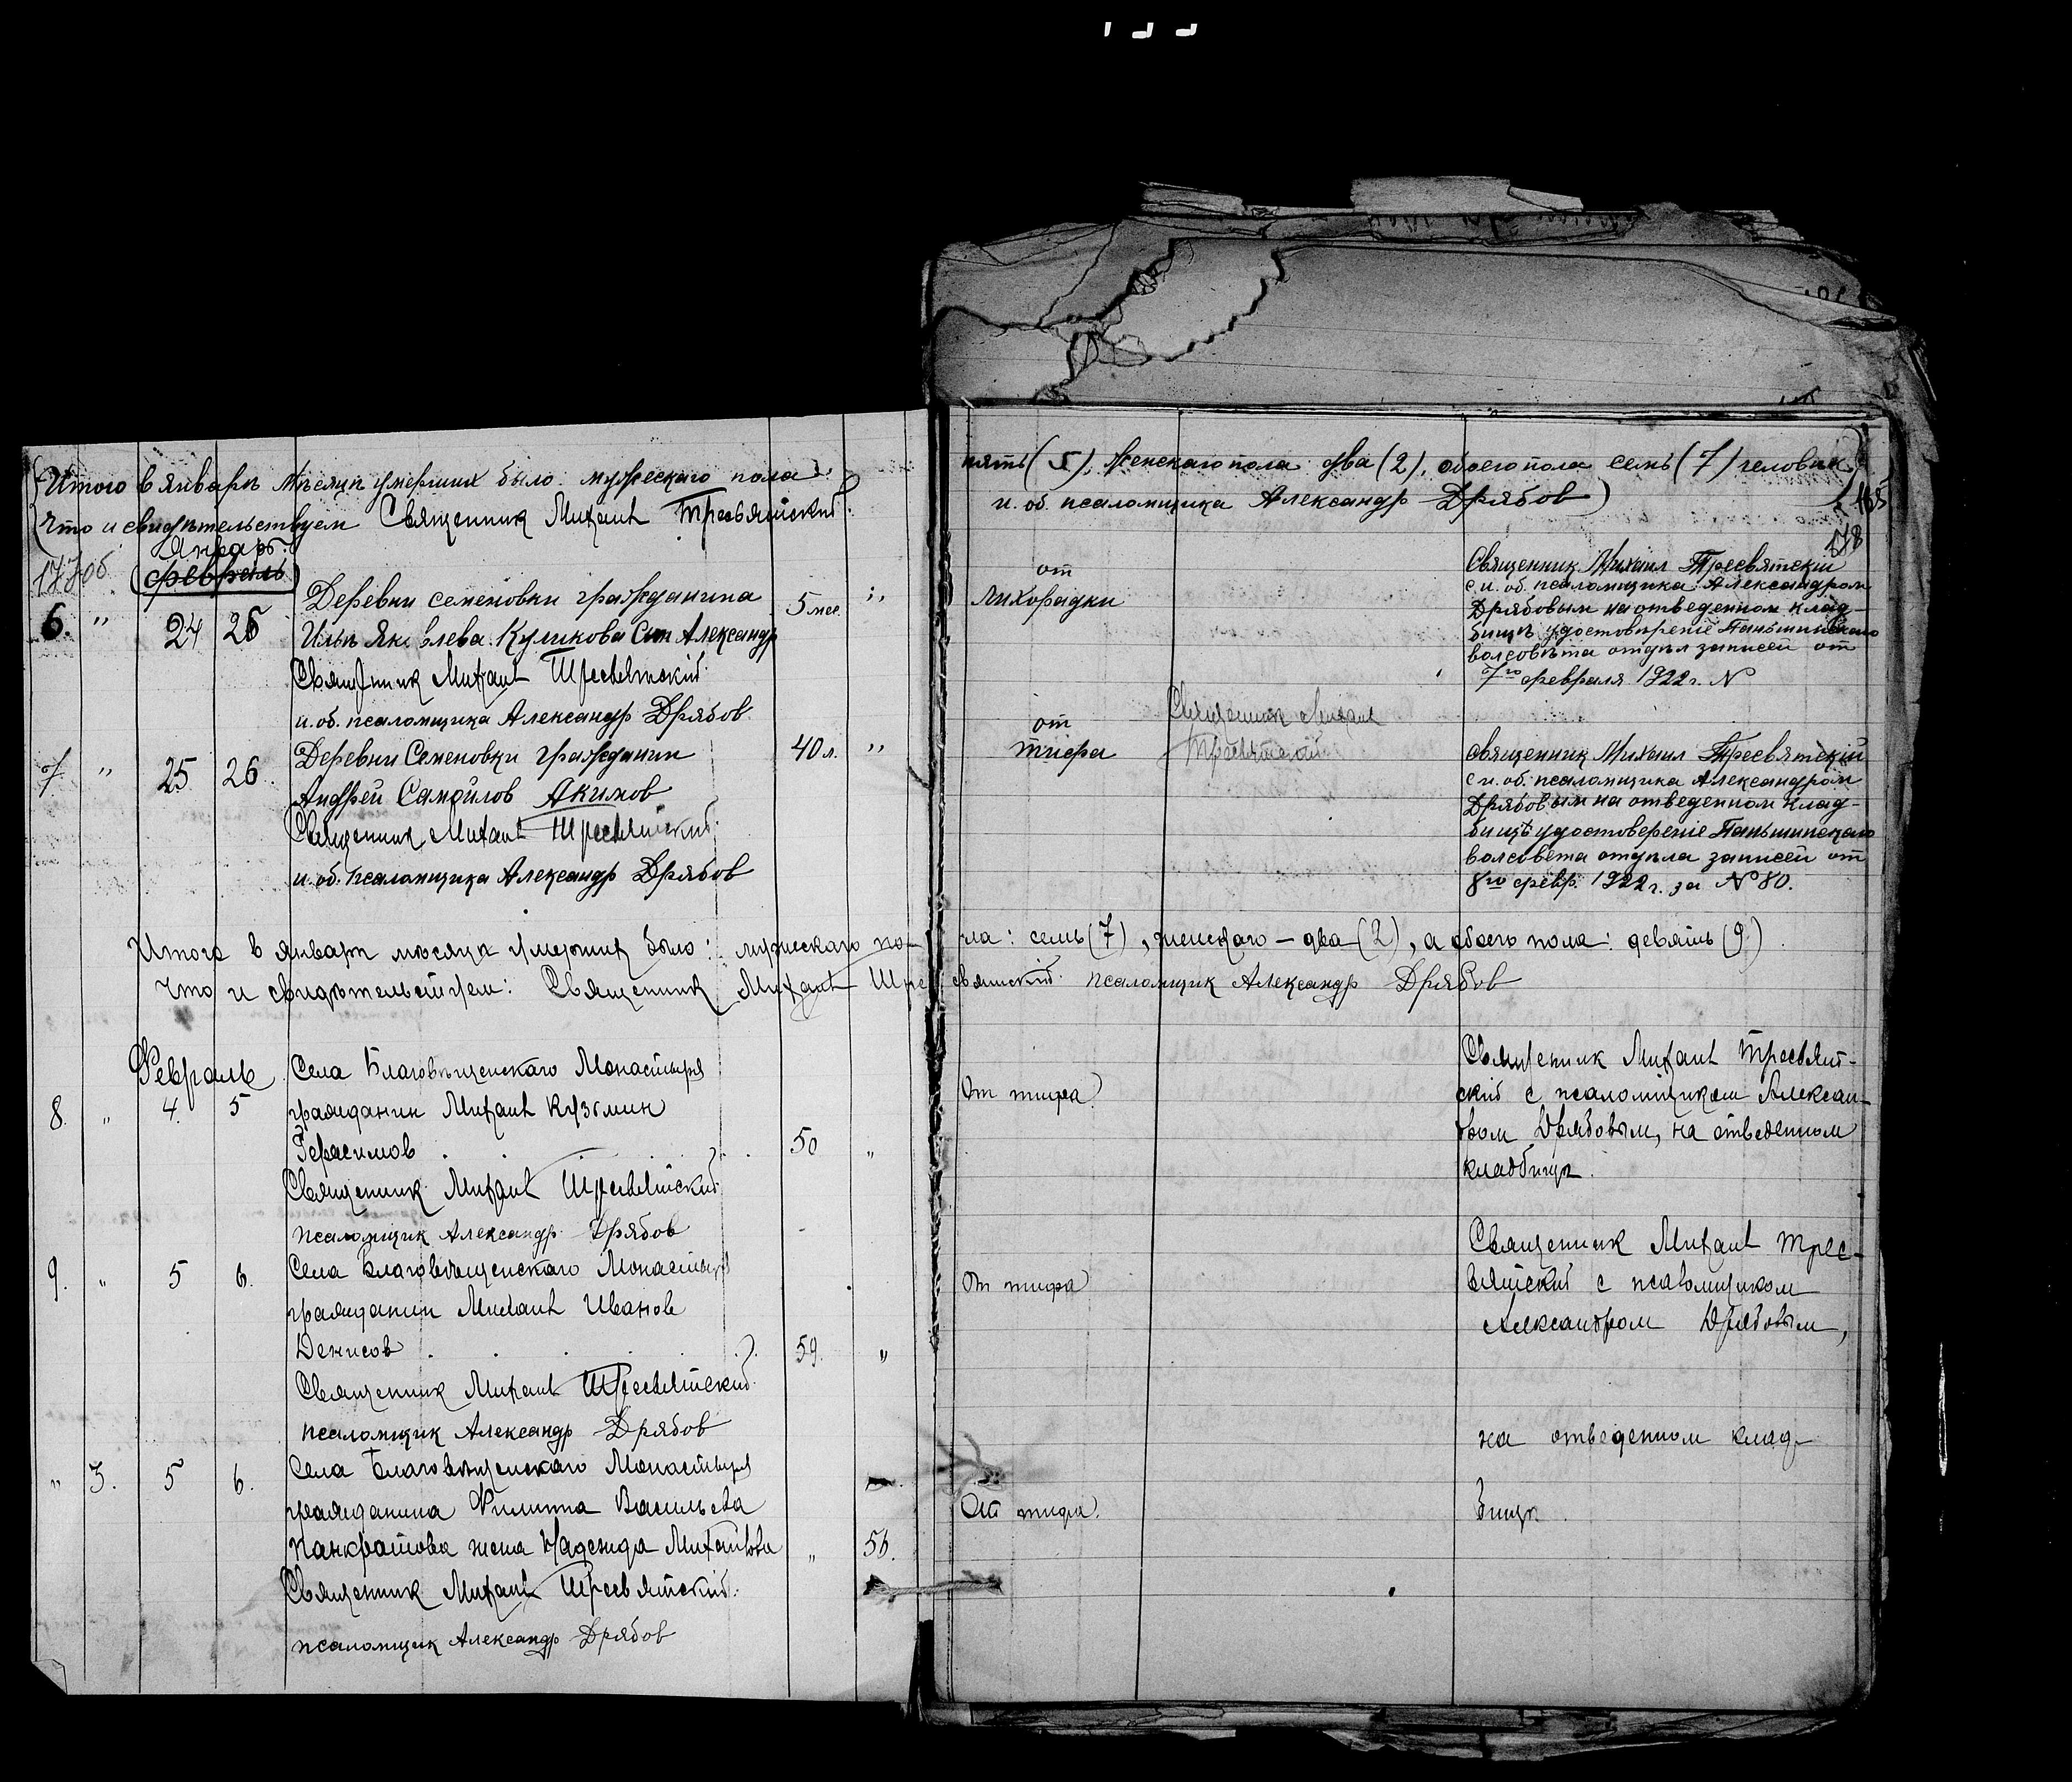 Итого в январѣ мѣсяцѣ умерших было мужескаго пола
что и свидѣтельствуем Священник Михаил Тресвятский
пять (5), женскаго пола два (2), обоего пола семь (7) человек
и. об. псаломщика Александр Дрябов)
178
177 об
Январь
(февраль)
6. " 24 26
Деревни Семеновки гражданина
Ильи Яковлева Куликова Сын Александр
5 мес. "
Священник Михаил Тресвятский
и. об. псаломщика Александр Дрябов
от
Лихорадки
Священник Михаил Тресвятскiи
с и. об. псаломщика Александром
Дрябовым на отведенном клад-
бищѣ удостовѣренiе Паньшинскаго
волсовѣта отдѣл записей от
7го февраля 1922 г. №
7 " 25 26
Деревни Семеновки гражданин
Андрей Самойлов Акимов
40 л. "
Священник Михаил Тресвятский
и. об. псаломщика Александр Дрябов
от
тифа
Священник Михаил
Тресвятский
Священник Михаил Тресвятскiй
с и. об. псаломщика Александром
Дрябовым на отведенном клад-
бищѣ удостоверенiе Паньшинскаго
волсовета отдѣла записей от
8го февр. 1922 г. за № 80.
Итого в январѣ мѣсяцѣ умерших было: мужескаго по-ла: семь (7), женскаго – два (2), а обоего пола: девять (9).
Что и свидѣтельствуем: Священник Михаил Тресвятский псаломщик Александр Дрябов
Февраль
8. " 4. 5
Села Благовѣщенскаго Монастыря
гражданин Михаил Кузьмин
Герасимов 50 "
Священник Михаил Тресвятский
псаломщик Александр Дрябов
От тифа.
Священник Михаил Тресвят-
ский с псаломщиком Алексан-
дром Дрябовым, на отведенном
кладбищѣ.
9. " 5 6.
Села Благовѣщенскаго Монастыря
гражданин Михаил Иванов
Денисов 59. "
Священник Михаил Тресвятский
псаломщик Александр Дрябов
От тифа
Священник Михаил Трес-
вятский с псаломщиком
Александром Дрябовым,
на отведенном клад-
бищѣ
" 3. 5 6.
Села Благовѣщенскаго Монастыря
гражданина Филиппа Васильева
Панкратова жена Надежда Михайлова " 56.
Священник Михаил Тресвятский.
псаломщик Александр Дрябов
От тифа.